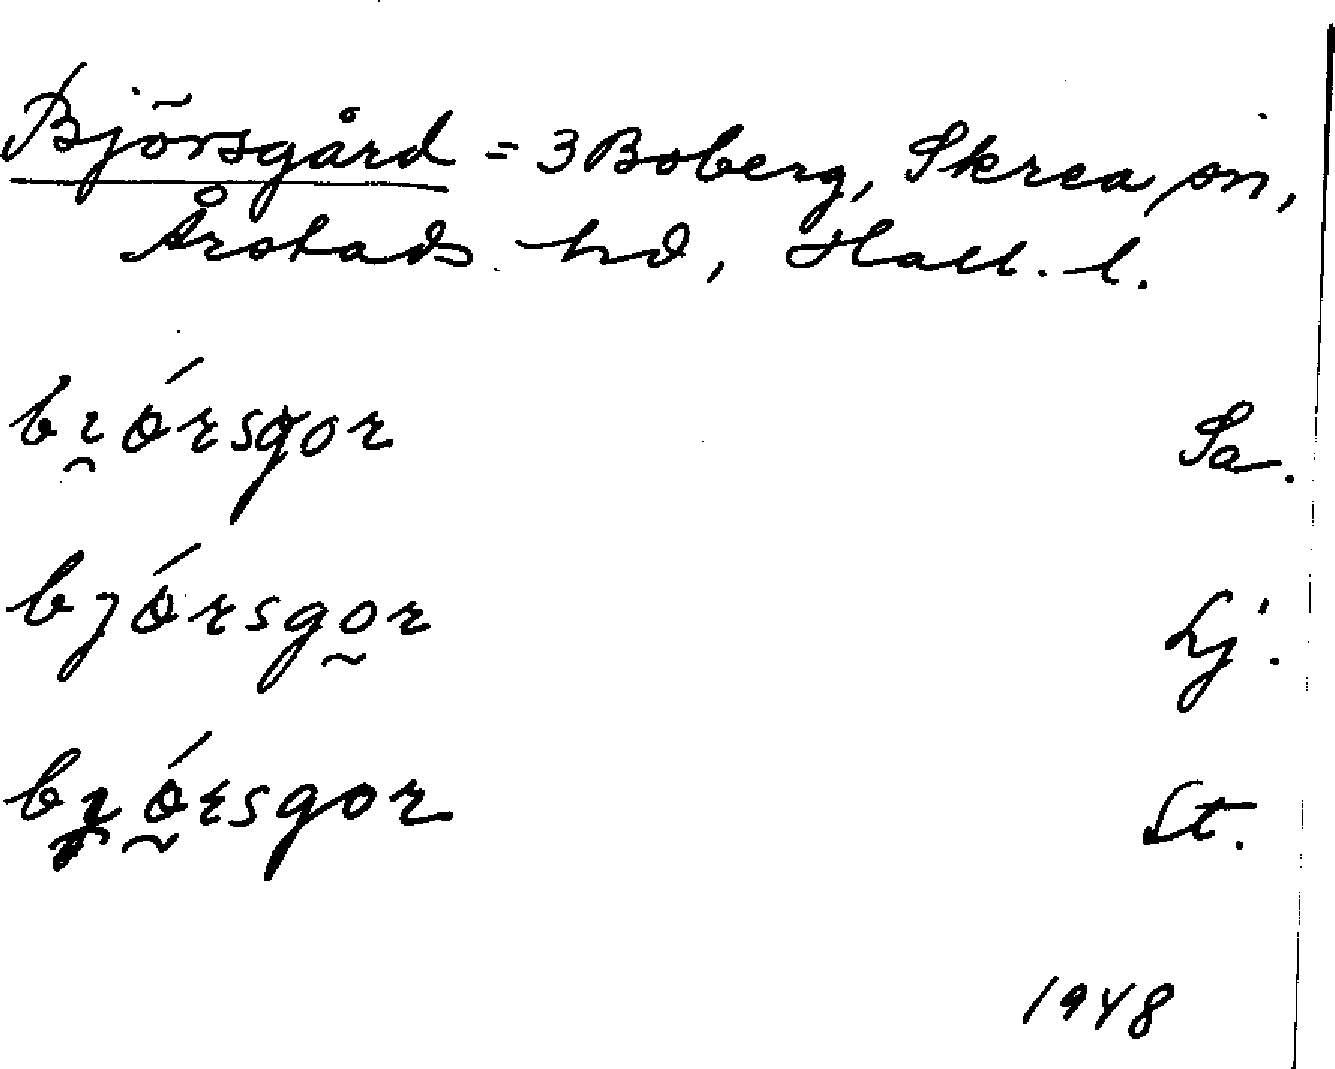 Björsgård = 3 Boberg, Skrea sn,
Årstads hd, Hall. l.
bi̯ǿrsgor Sa.
bjǿrsgo̰r Lj.
bi̯ǿ̰rsgor St.
1948